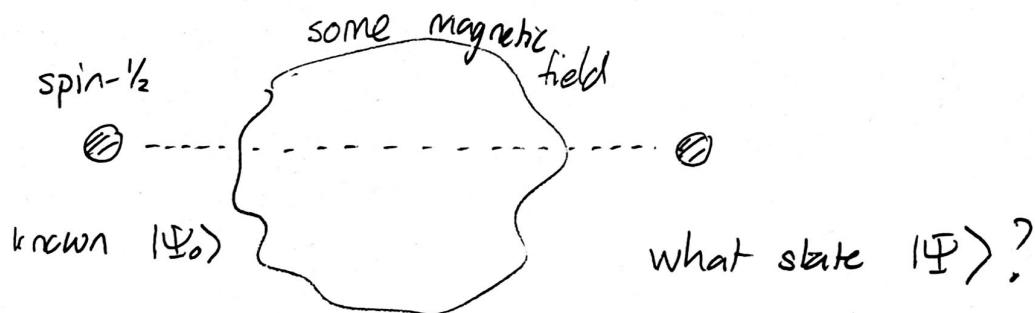 some magnetic
field
spin-½
known |Ψ₀⟩
what state |Ψ⟩?